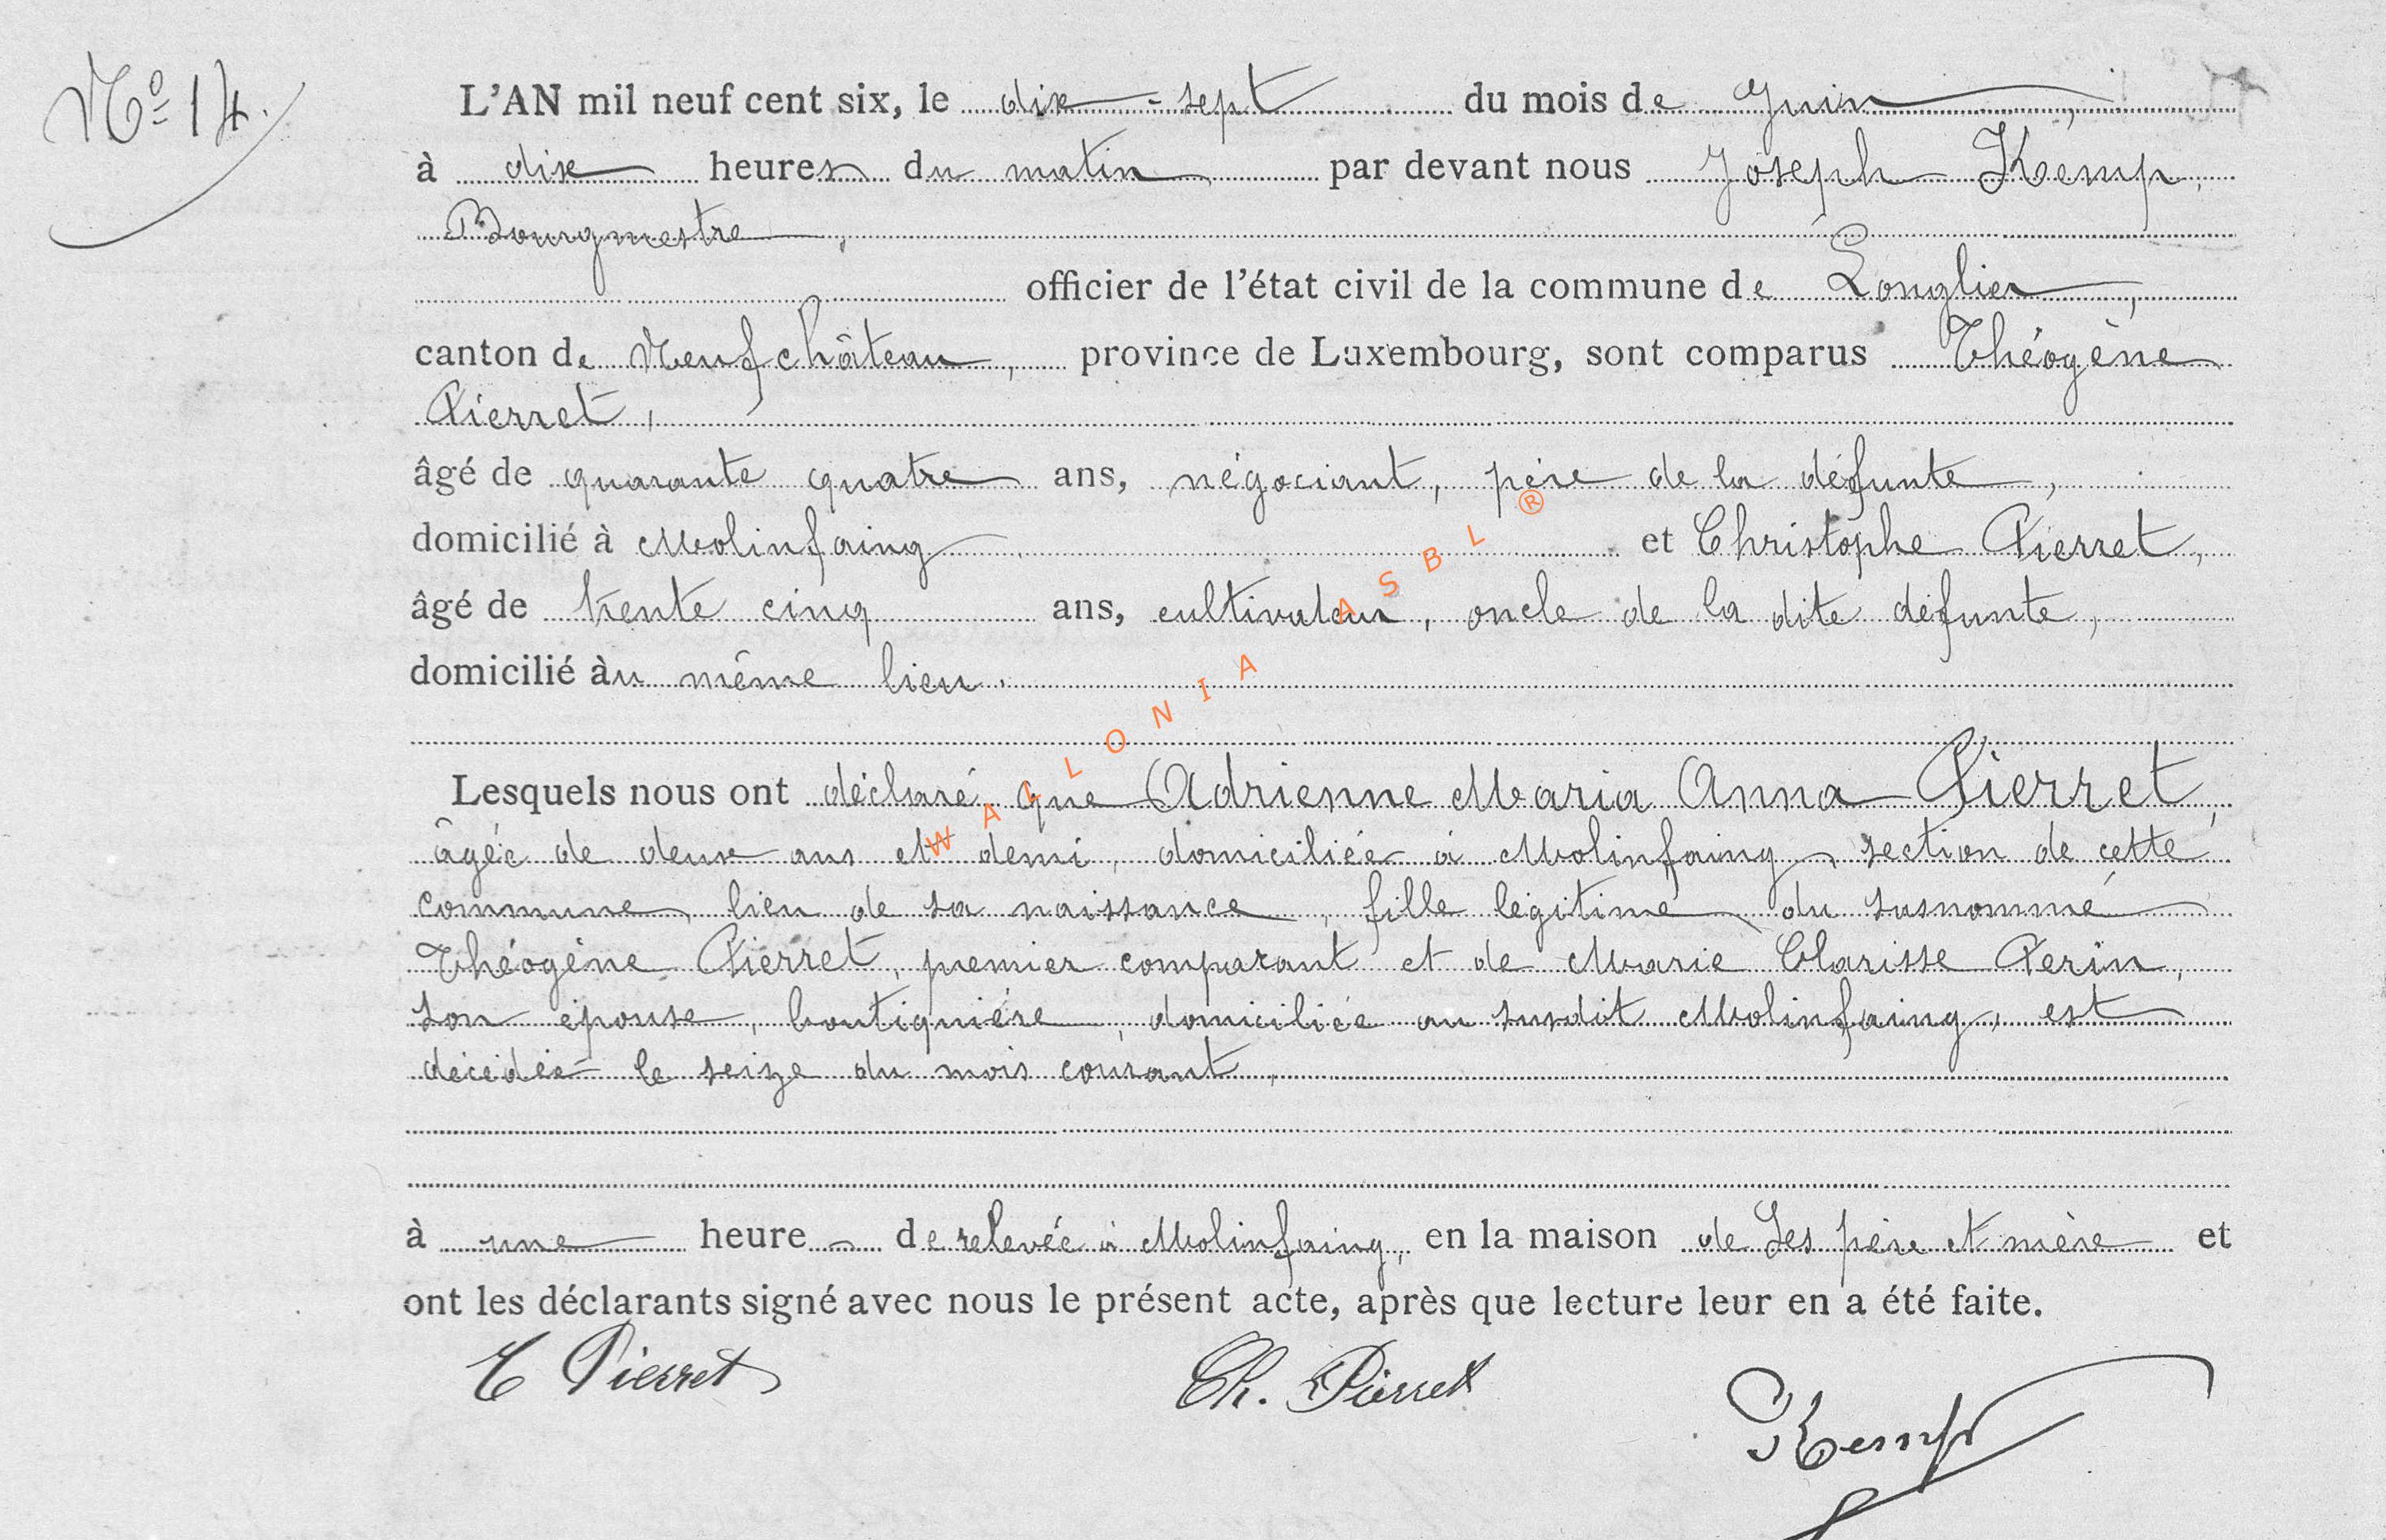 Nº 14.
L'AN mil neuf cent six, le dix-sept du mois de Juin,
à dix heures du matin par devant nous Joseph Kemp,
Bourgmestre,
officier de l'état civil de la commune de Longlier,
canton de Neufchâteau, province de Luxembourg, sont comparus Théogène
Pierret,
âgé de quarante quatre ans, négociant, père de la défunte,
domicilié à Molinfaing et Christophe Pierret,
âgé de trente cinq ans, cultivateur, oncle de la dite défunte,
domicilié àu même lieu.
Lesquels nous ont déclaré que Adrienne Maria Anna Pierret,
âgée de deux ans et demi, domiciliée à Molinfaing, section de cette
commune, lieu de sa naissance, fille légitime du susnommé
Théogène Pierret, premier comparant et de Marie Clarisse Perin,
son épouse, boutiquière, domiciliée au susdit Molinfaing, est
décédée le seize du mois courant,
à une heure de relevée à Molinfaing, en la maison de ses père et mère et
ont les déclarants signé avec nous le présent acte, après que lecture leur en a été faite.
T Pierret Ch. Pierret Kemp
WALLONIA ASBL ®